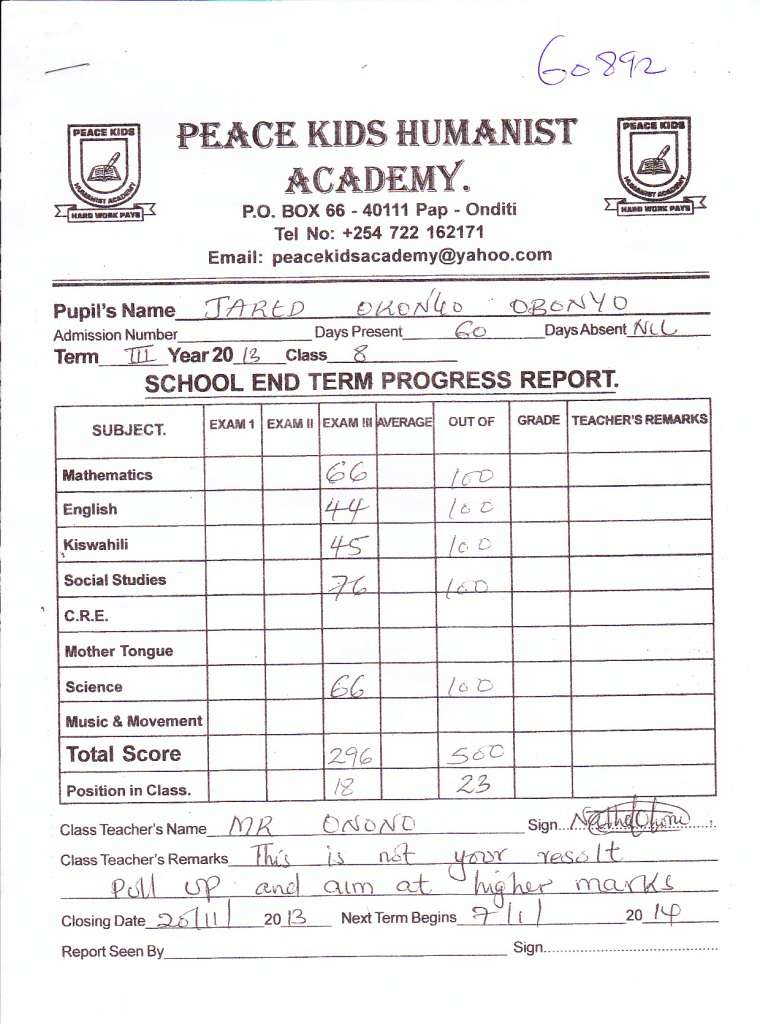 60892
PEACE KIDS
HUMANIST ACADEMY
HARD WORK PAYS
PEACE KIDS HUMANIST
ACADEMY.
PEACE KIDS
HUMANIST ACADEMY
HARD WORK PAYS
P.O. BOX 66 - 40111 Pap - Onditi
Tel No: +254 722 162171
Email: peacekidsacademy@yahoo.com
Pupil's Name JARED OKONGO OBONYO
Admission Number Days Present 60 Days Absent NIL
Term III Year 2013 Class 8
SCHOOL END TERM PROGRESS REPORT.
SUBJECT. EXAM 1 EXAM II EXAM III AVERAGE OUT OF GRADE TEACHER'S REMARKS
Mathematics 66 100
English 44 100
Kiswahili 45 100
Social Studies 76 100
C.R.E.
Mother Tongue
Science 66 100
Music & Movement
Total Score 296 500
Position in Class. 18 23
Class Teacher's Name MR ONONO Sign
Class Teacher's Remarks This is not your result
Pull up and aim at higher marks
Closing Date 20/11/ 2013 Next Term Begins 7/1/ 2014
Report Seen By Sign